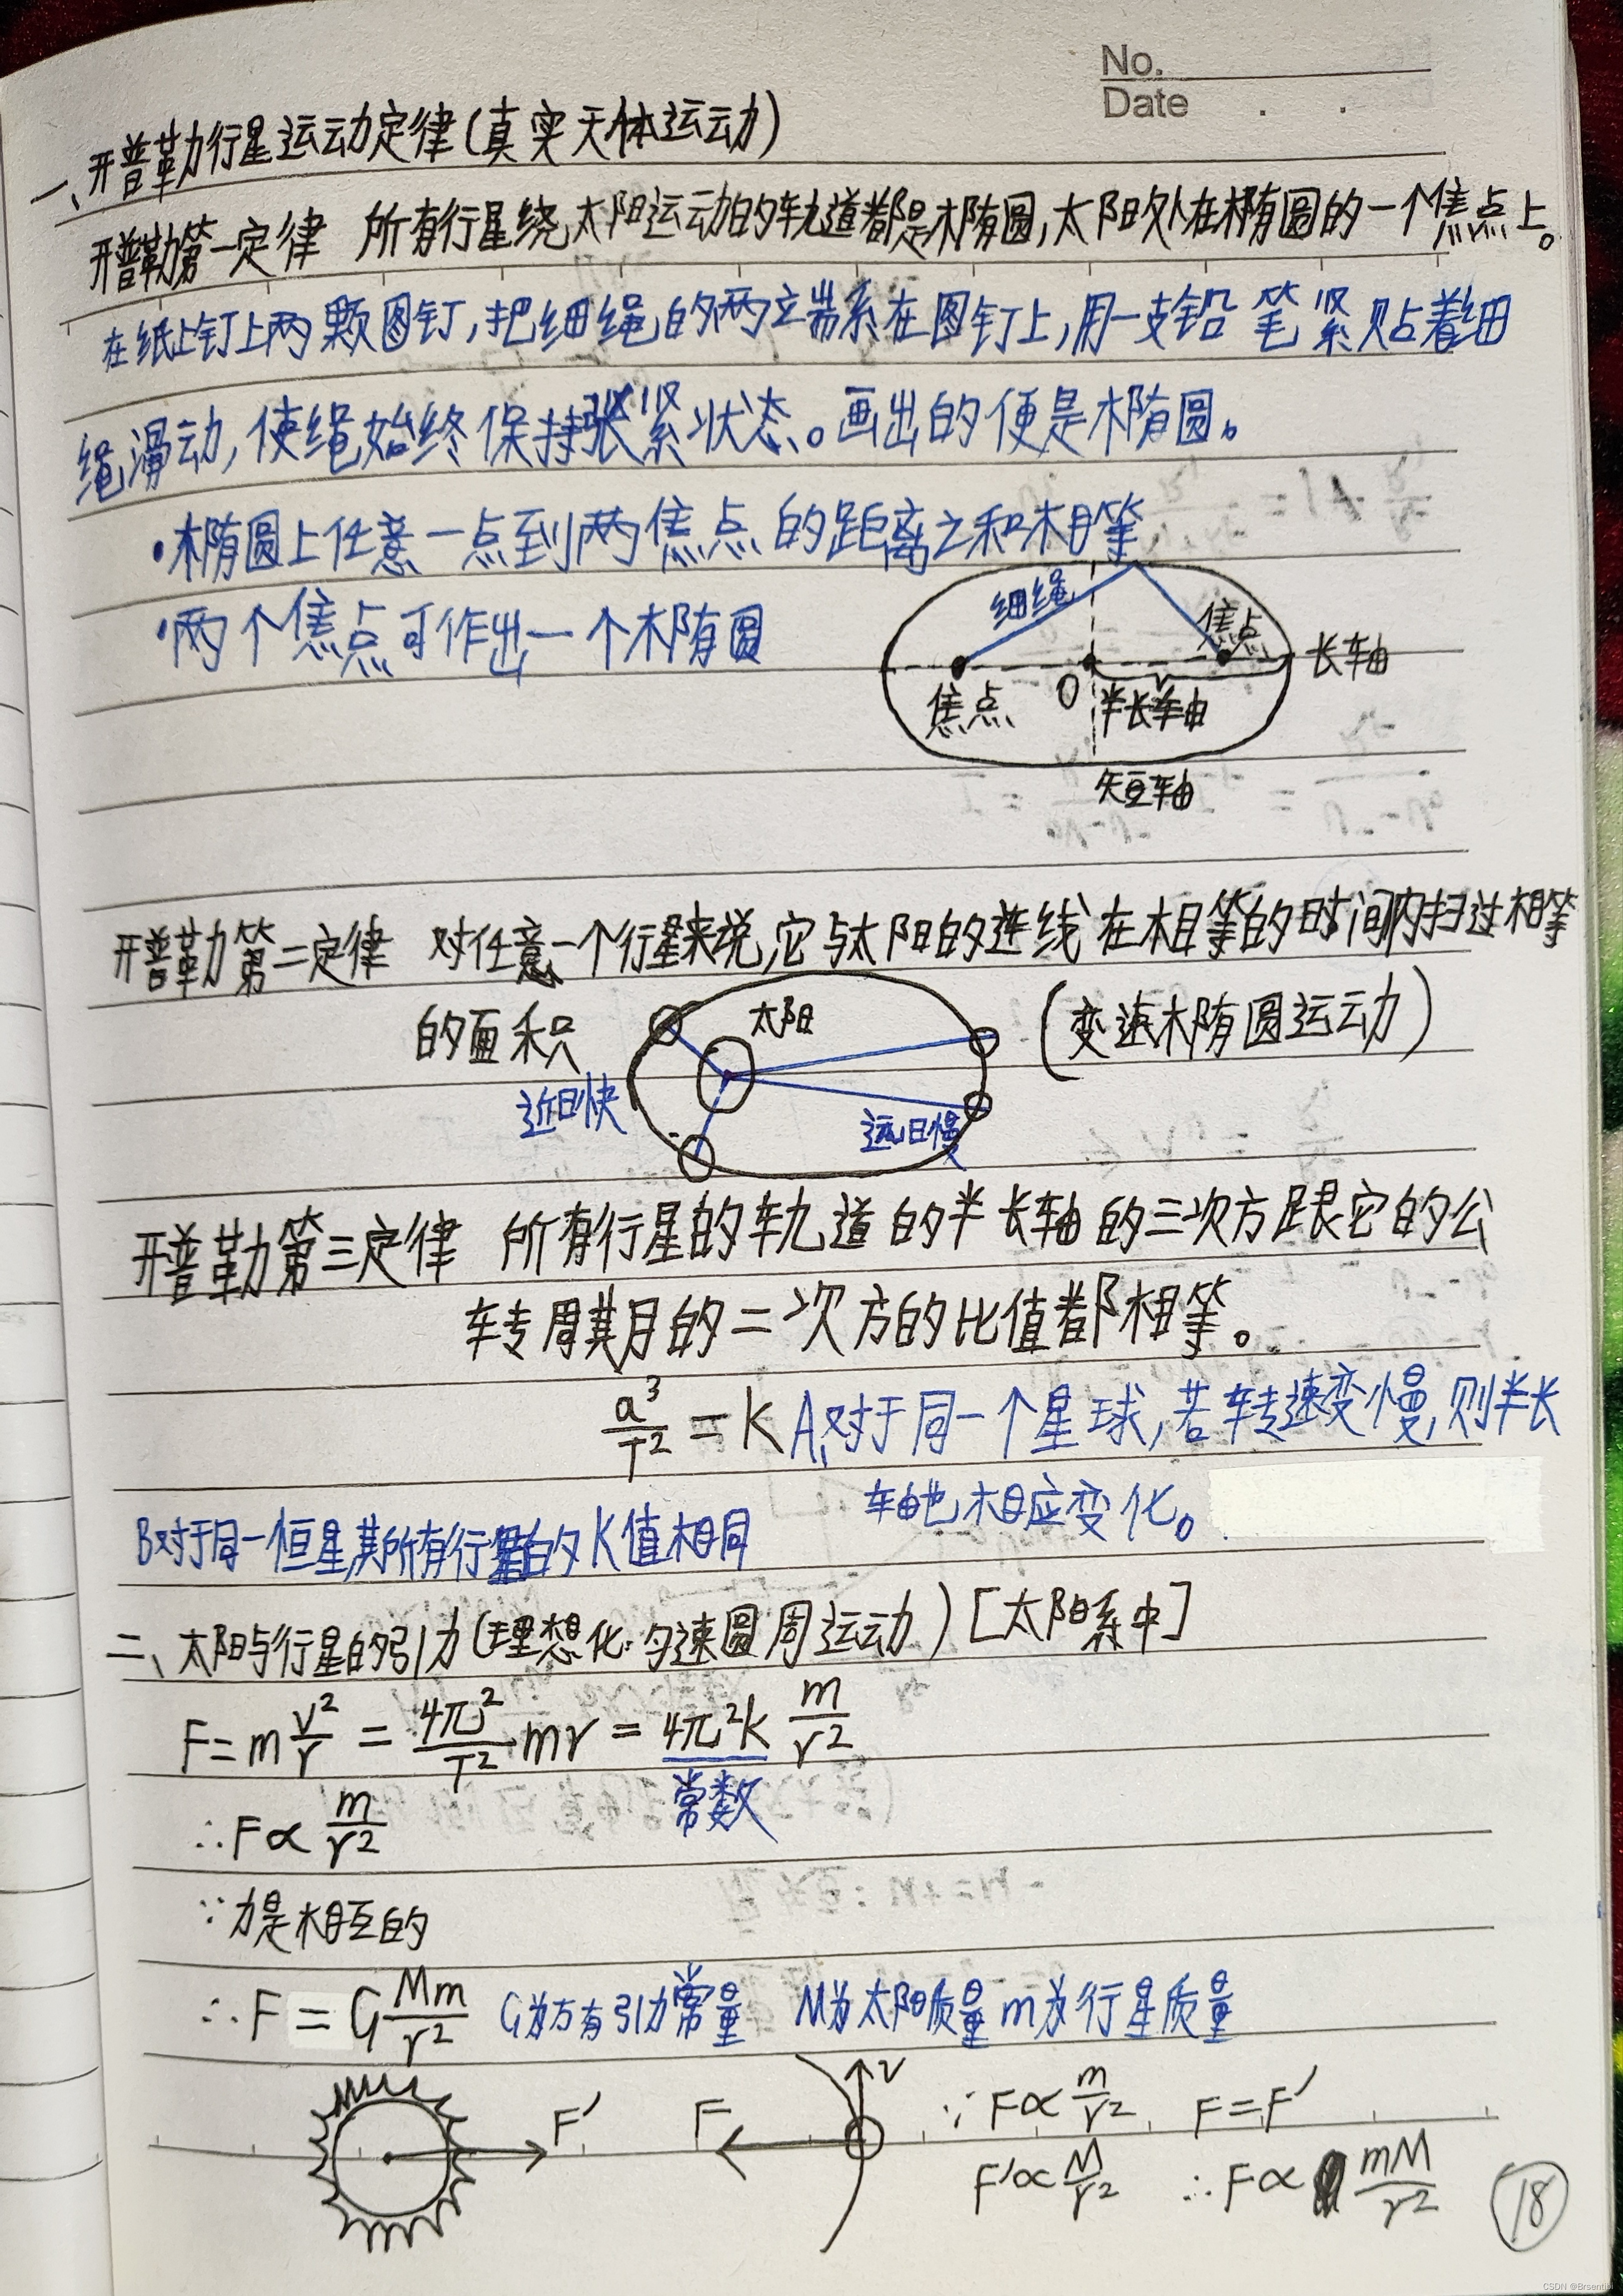 No.
Date . .
一、开普勒行星运动定律(真实天体运动)
开普勒第一定律 所有行星绕太阳运动的轨道都是椭圆,太阳处在椭圆的一个焦点上。
在纸上钉上两颗图钉,把细绳的两立端系在图钉上,用一支铅笔紧贴着细
绳滑动,使绳始终保持张紧状态。画出的便是椭圆。
·椭圆上任意一点到两焦点的距离之和相等
·两个焦点可作出一个椭圆
细绳
焦点
长轴
焦点
O
半长轴
短轴
开普勒第二定律 对任意一个行星来说,它与太阳的连线在相等的时间内扫过相等
的面积
太阳
(变速椭圆运动)
近日快
远日慢
开普勒第三定律 所有行星的轨道的半长轴的三次方跟它的公
转周期的二次方的比值都相等。
a³/T² = K A,对于同一个星球,若转速变慢,则半长
轴也相应变化。
B对于同一恒星,其所有行星的K值相同
二、太阳与行星的引力(理想化·匀速圆周运动)[太阳系中]
F=m v²/r = 4π²/T² mr = 4π²k m/r²
常数
∴F∝ m/r²
∵力是相互的
∴F = G Mm/r² G为万有引力常量 M为太阳质量 m为行星质量
F′
F
v
∵F∝ m/r² F=F′
F′∝ M/r² ∴F∝ mM/r²
18
CSDN @Brsentin